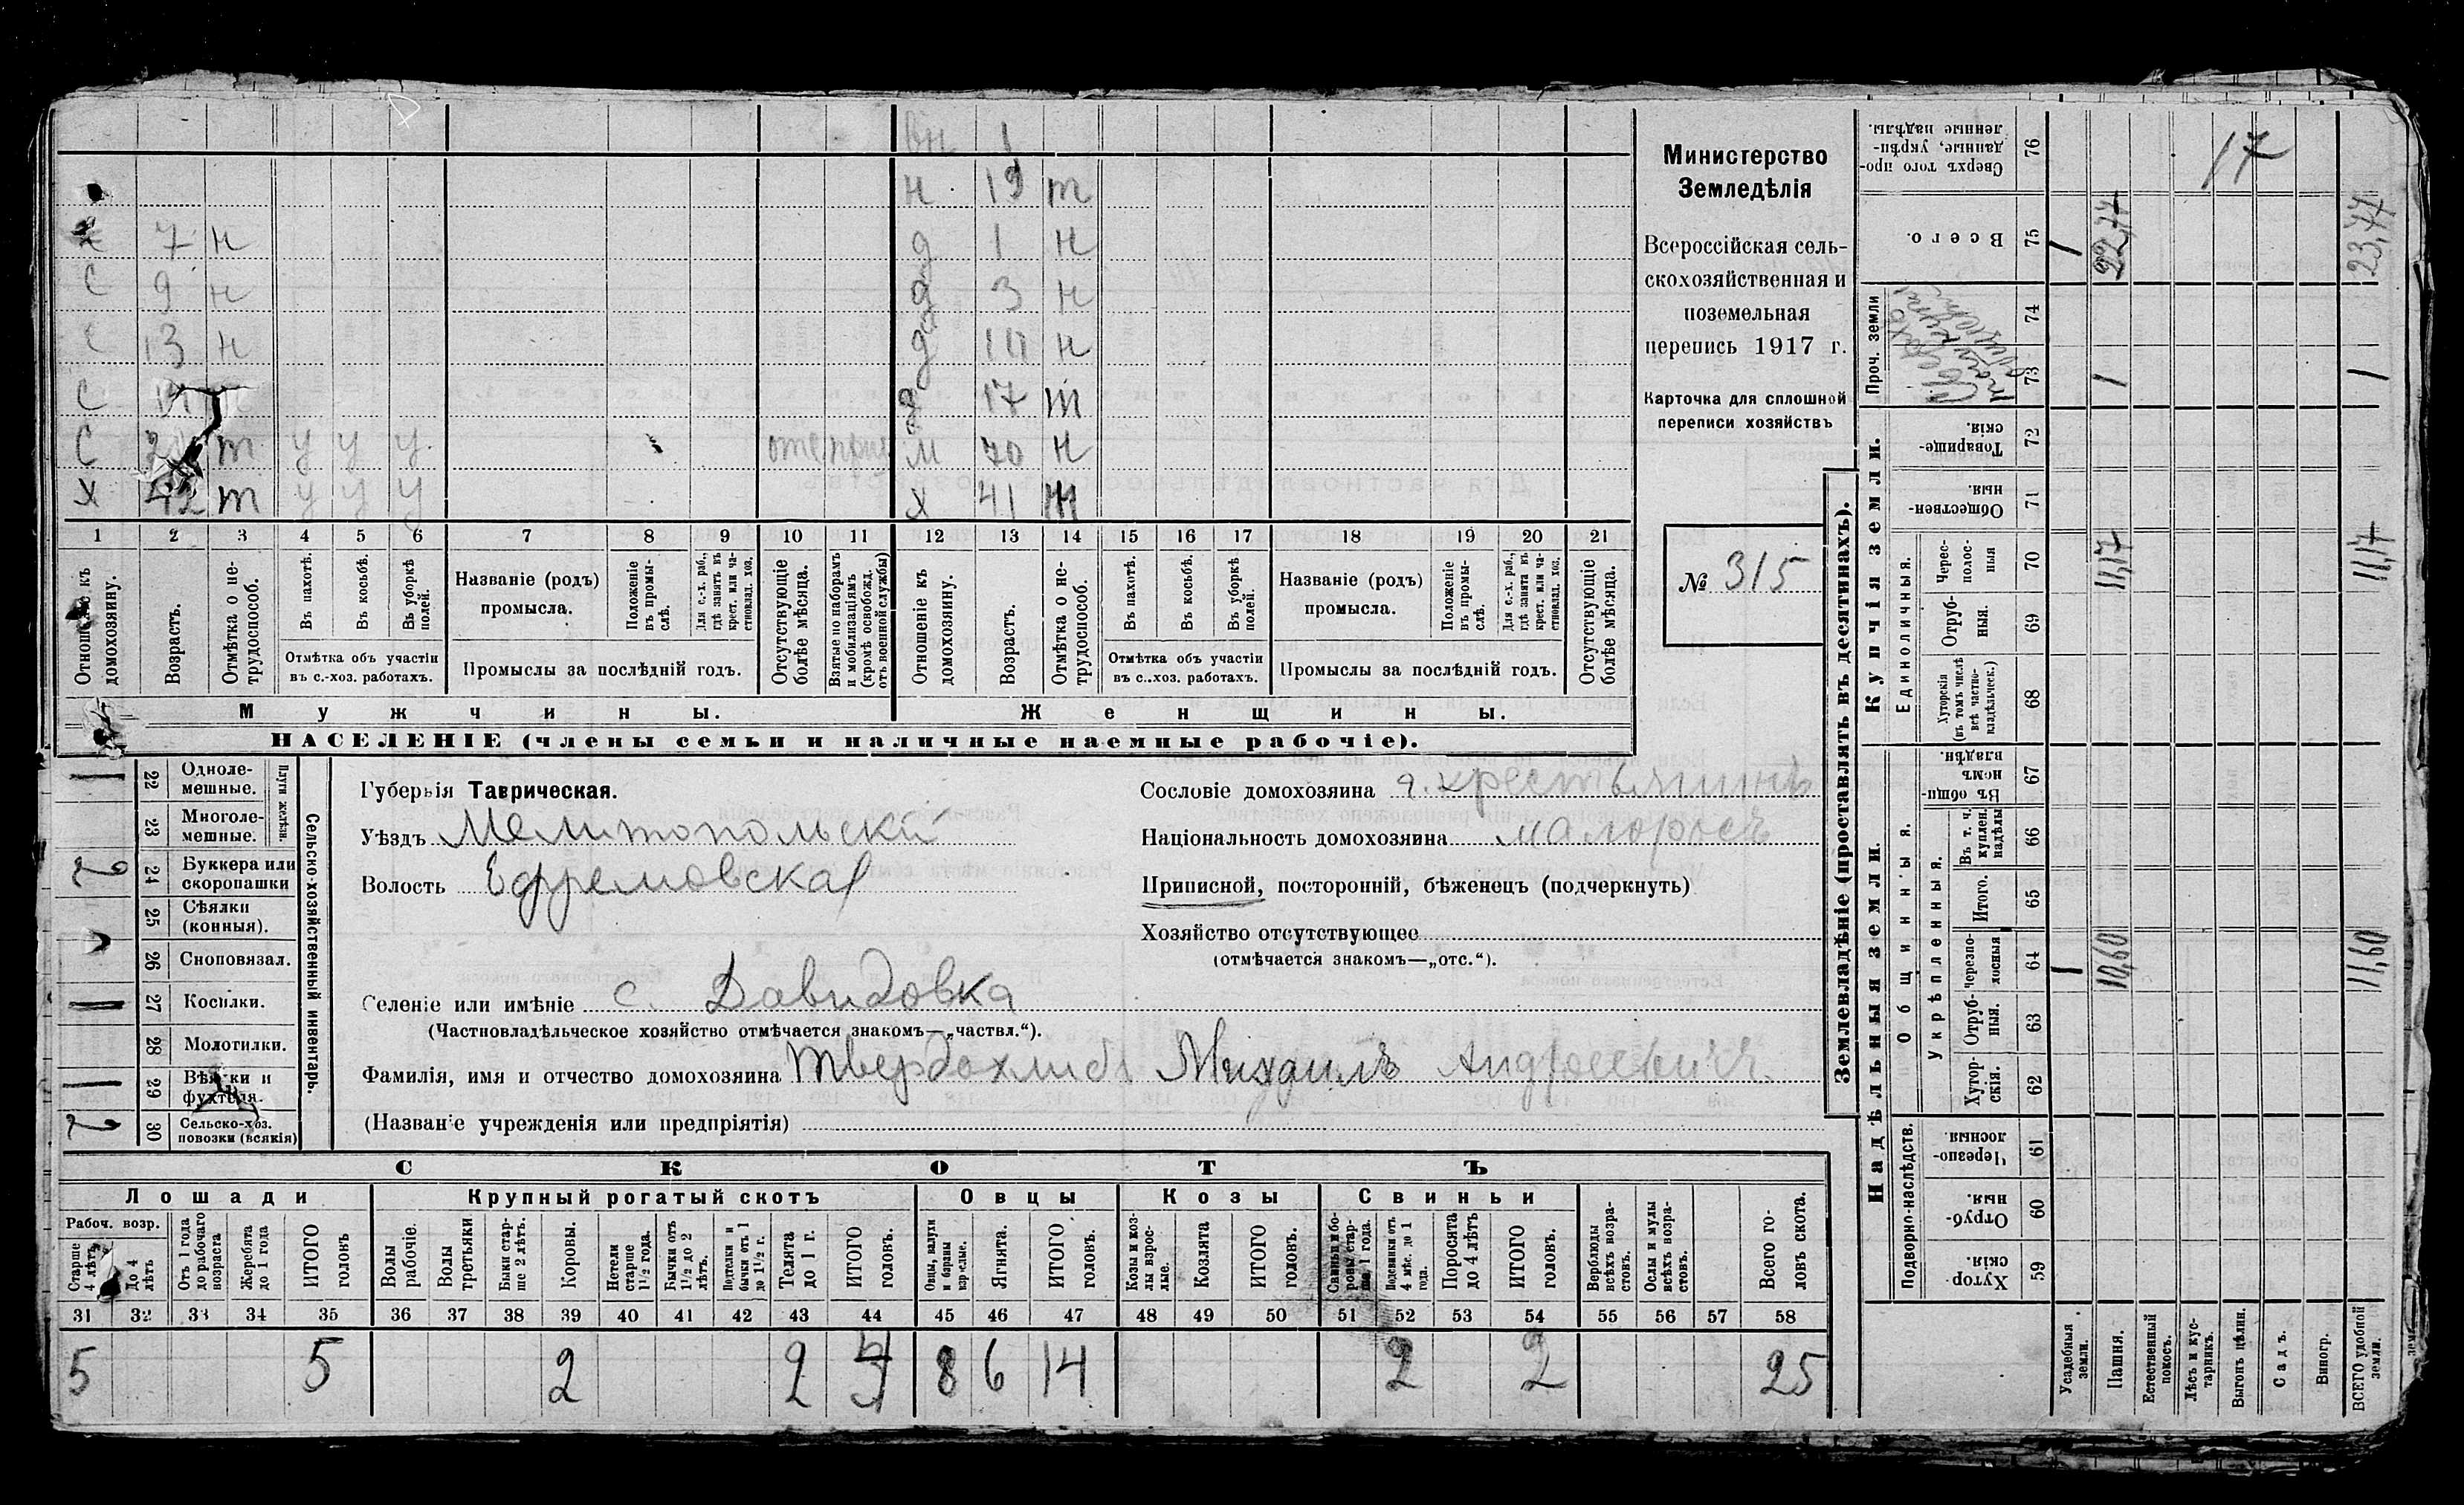 вн 1
н 19 т
7 н д 1 н
с 9 н д 3 н
с 13 н д н
с д 17 т
с т у у у м 70 н
х 42 т у у у х 41 т
1 2 3 4 5 6 7 8 9 10 11 12 13 14 15 16 17 18 19 20 21
Отношеніе къ домохозяину.
Возрастъ.
Отмѣтка о нетрудоспособ.
Въ пахотѣ.
Въ косьбѣ.
Въ уборкѣ полей.
Отмѣтка объ участіи въ с.-хоз. работахъ.
Названіе (родъ) промысла.
Положеніе въ промыслѣ.
Для с.-х. раб., гдѣ занятъ въ крест. или частновлад. хоз.
Промыслы за послѣдній годъ.
Отсутствующіе болѣе мѣсяца.
Взятые по наборамъ и мобилизаціямъ (кромѣ освобожд. отъ военной службы)
Отношеніе къ домохозяину.
Возрастъ.
Отмѣтка о нетрудоспособ.
Въ пахотѣ.
Въ косьбѣ.
Въ уборкѣ полей.
Отмѣтка объ участіи въ с..хоз. работахъ.
Названіе (родъ) промысла.
Положеніе въ промыслѣ.
Для с.-х. раб., гдѣ занята въ крест. или частновлад. хоз.
Промыслы за послѣдній годъ.
Отсутствующіе болѣе мѣсяца.
Мужчины.
Женщины.
НАСЕЛЕНІЕ (члены семьи и наличные наемные рабочіе).
Министерство
Земледѣлія
Всероссійская сель-
скохозяйственная и
поземельная
перепись 1917 г.
Карточка для сплошной
переписи хозяйствъ
№ 315
Сельско-хозяйственный инвентарь.
Плуги желѣзн.
1 22 Однолемешные.
23 Многолемешные.
2 24 Буккера или скоропашки
25 Сѣялки (конныя).
26 Сноповязал.
1 27 Косилки.
28 Молотилки.
1 29 Вѣялки и фухтеля.
2 30 Сельско-хоз. повозки (всякія)
Губернія Таврическая.
Уѣздъ Мелитопольскій
Волость Ефремовская
Селеніе или имѣніе с. Давидовка
(Частновладѣльческое хозяйство отмѣчается знакомъ—„частвл.“).
Фамилія, имя и отчество домохозяина Твердохлибъ Михаилъ Андреевичъ
(Названіе учрежденія или предпріятія)
Сословіе домохозяина крестьянинъ
Національность домохозяина малороссъ
Приписной, посторонній, бѣженецъ (подчеркнуть)
Хозяйство отсутствующее
(отмѣчается знакомъ—„отс.“).
СКОТЪ
Лошади
Крупный рогатый скотъ
Овцы
Козы
Свиньи
Рабоч. возр.
Старше 4 лѣтъ
До 4 лѣтъ
Отъ 1 года до рабочаго возраста
Жеребята до 1 года
ИТОГО головъ
Волы рабочіе.
Волы третьяки
Быки старше 2 лѣтъ.
Коровы.
Нетели старше 1½ года.
Бычки отъ 1½ до 2 лѣтъ.
Подтелки и бычки отъ 1 до 1½ г.
Телята до 1 г.
ИТОГО головъ.
Овцы, валухи и бараны взрослые.
Ягнята.
ИТОГО головъ.
Козы и козлы взрослые.
Козлята
ИТОГО головъ.
Свиньи и боровы старше 1 года.
Подсвинки отъ 4 мѣс. до 1 года.
Поросята до 4 лѣтъ
ИТОГО головъ.
Верблюды всѣхъ возрастовъ.
Ослы и мулы всѣхъ возрастовъ.
Всего головъ скота.
31 32 33 34 35 36 37 38 39 40 41 42 43 44 45 46 47 48 49 50 51 52 53 54 55 56 57 58
5 5 2 2 4 8 6 14 2 2 25
Землевладѣніе (проставлять въ десятинахъ).
Сверхъ того проданные, укрѣпленные надѣлы. 76
17
Всего. 75 1 22,77 23,77
Проч. земли
74
73 1 1
Купчія земли.
Товарищескія. 72
Общественныя. 71
Единоличныя.
Чересполосныя 70 11,17 11,17
Отрубныя. 69
Хуторскія (въ томъ числѣ всѣ частновладѣльческ.) 68
Надѣльныя земли.
Общинныя.
Въ общемъ владѣн. 67
Укрѣпленныя.
Въ т. ч. куплен. надѣлы 66
Итого. 65
Черезполосныя 64 1 10,60 11,60
Отрубныя. 63
Хуторскія. 62
Подворно-наслѣдств.
Черезполосныя. 61
Отрубныя. 60
Хуторскія. 59
Усадебныя земли.
Пашня.
Естественный покосъ.
Лѣсъ и кустарникъ.
Выгонъ цѣлин.
Садъ.
Виногр.
ВСЕГО удобной земли.